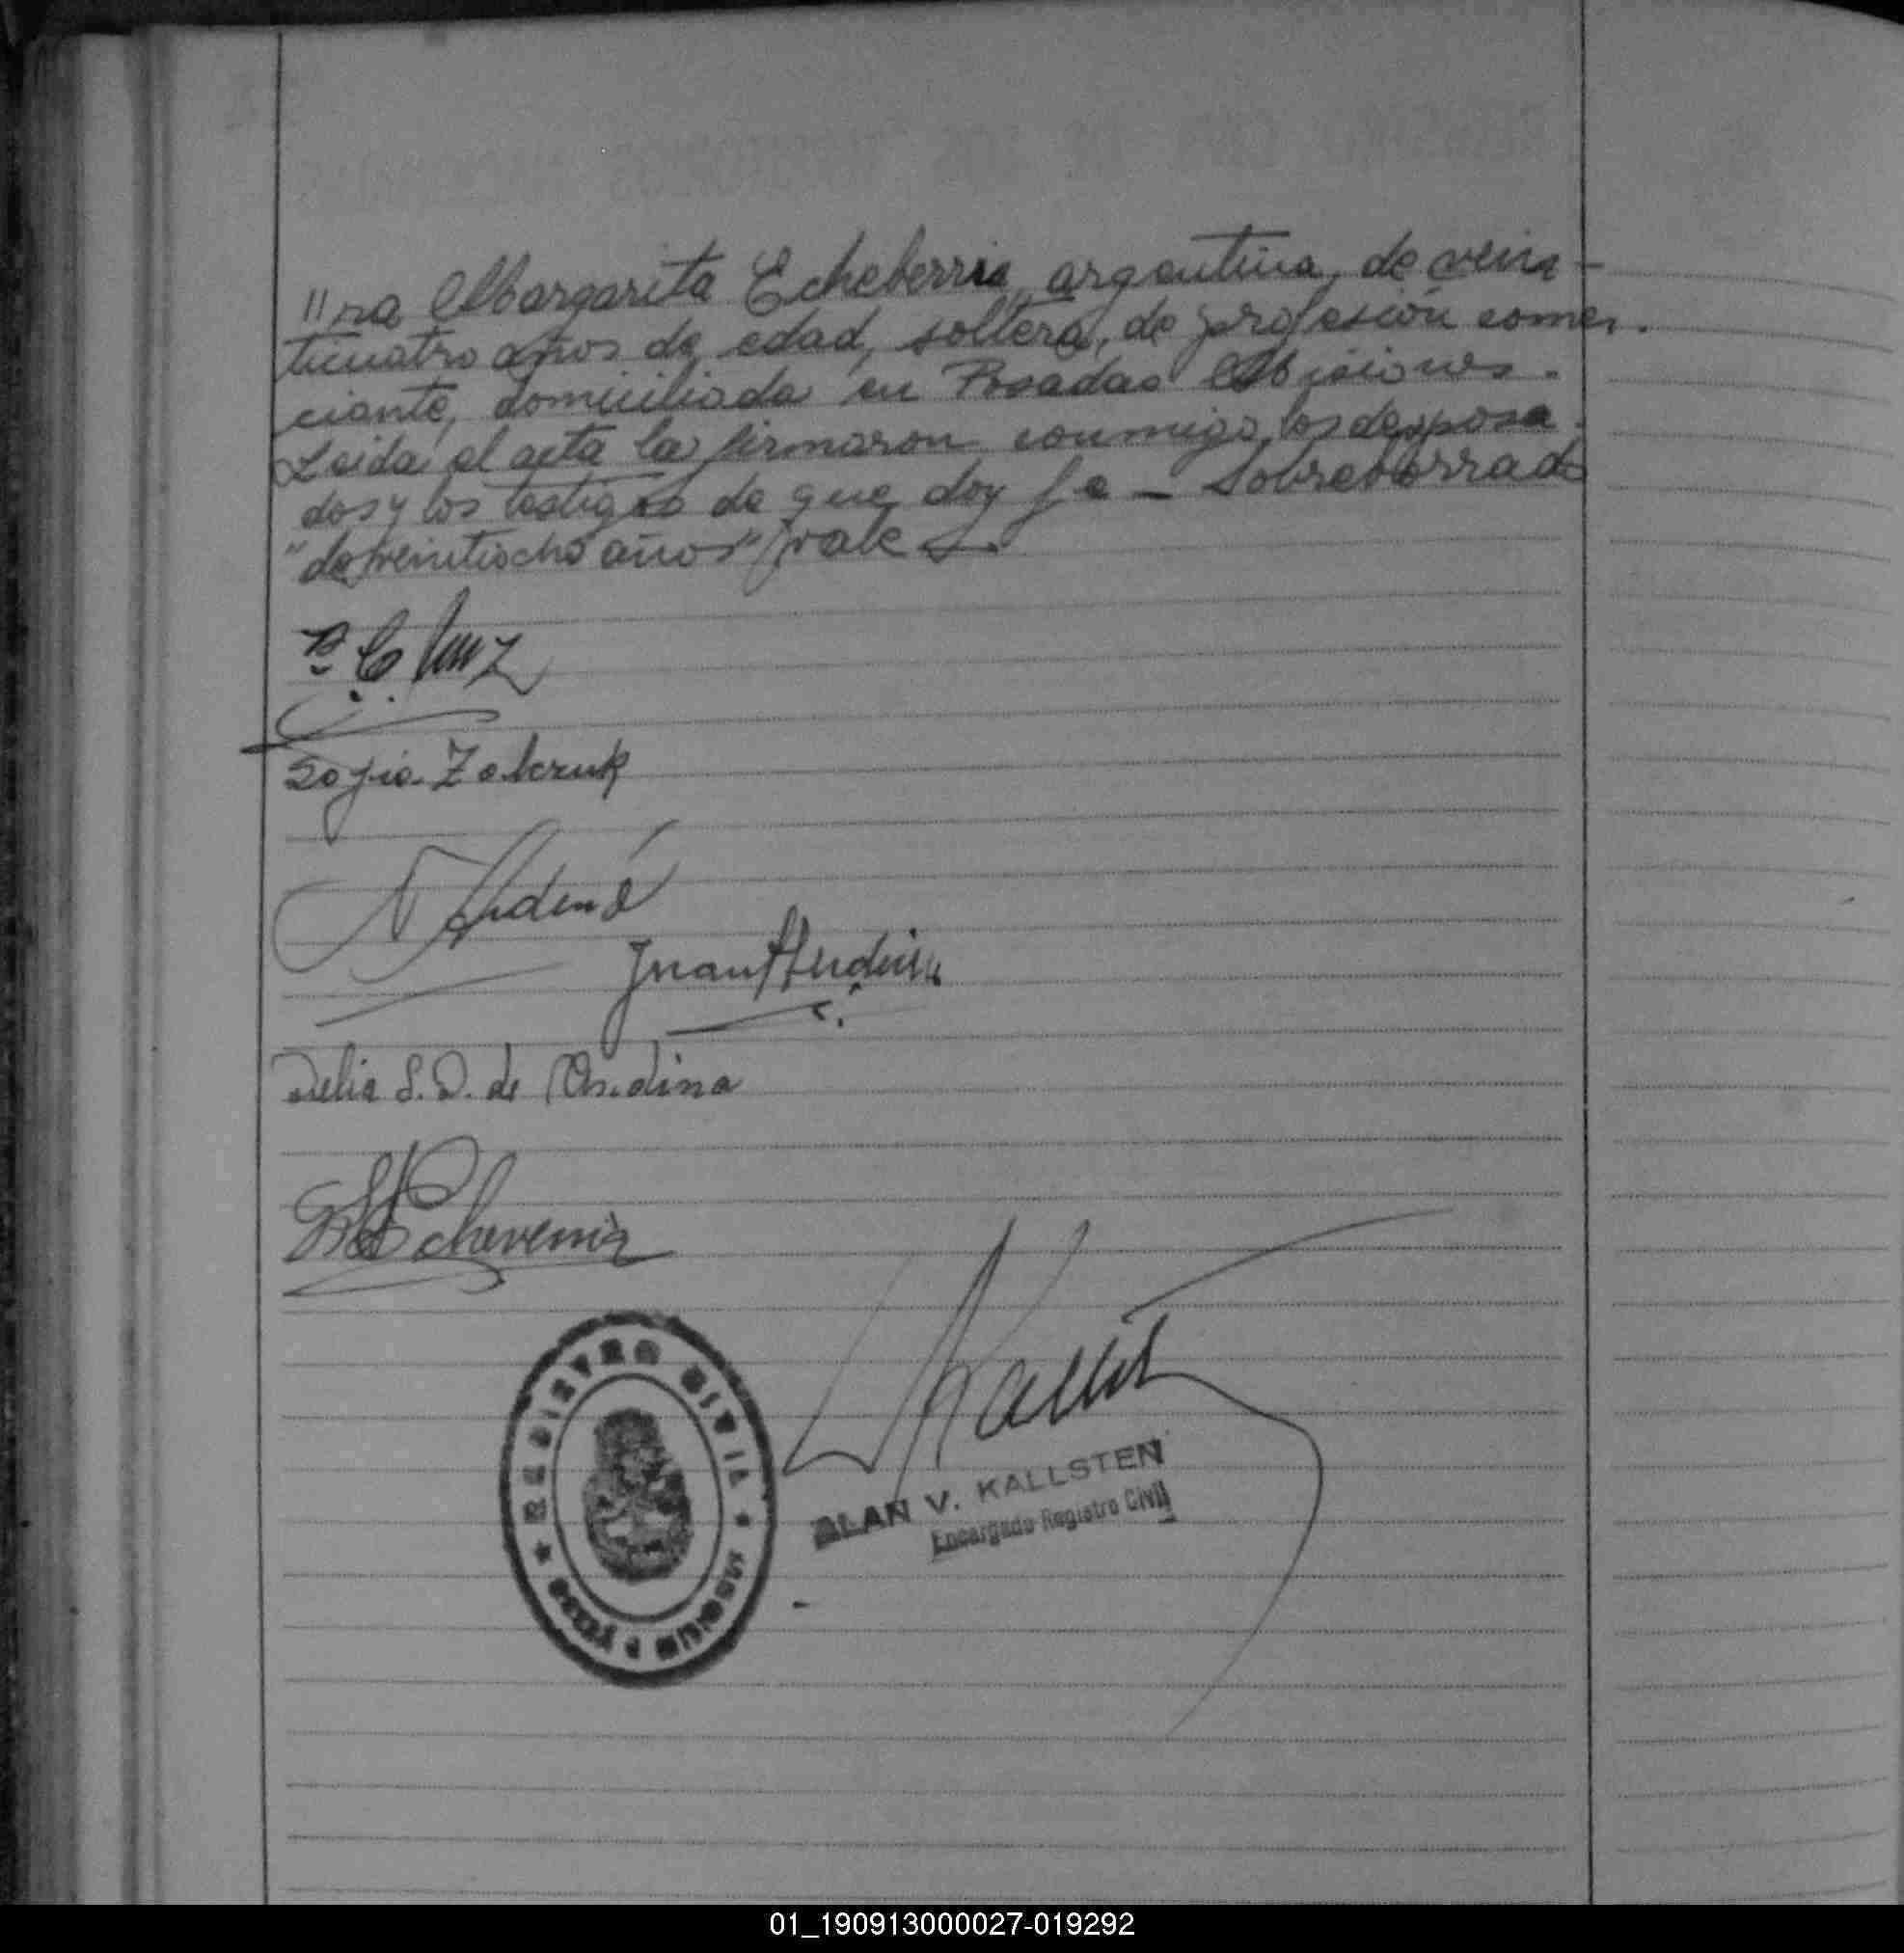 "na Margarita Echeberria, argentina, de vein-
ticuatro años de edad, soltera, de profesión comer-
ciante, domiciliada en Posadas Misiones.
Leida el acta la firmaron conmigo, los desposa-
dos y los testigos de que doy fe - Sobreborrado
"de veintiocho años" vale -
Sofia Zabczuk
Juan
Delia S. D. de Ondina
Echeverria
REGISTRO CIVIL
ALAN V. KALLSTEN
Encargado Registro Civil
01_190913000027-019292